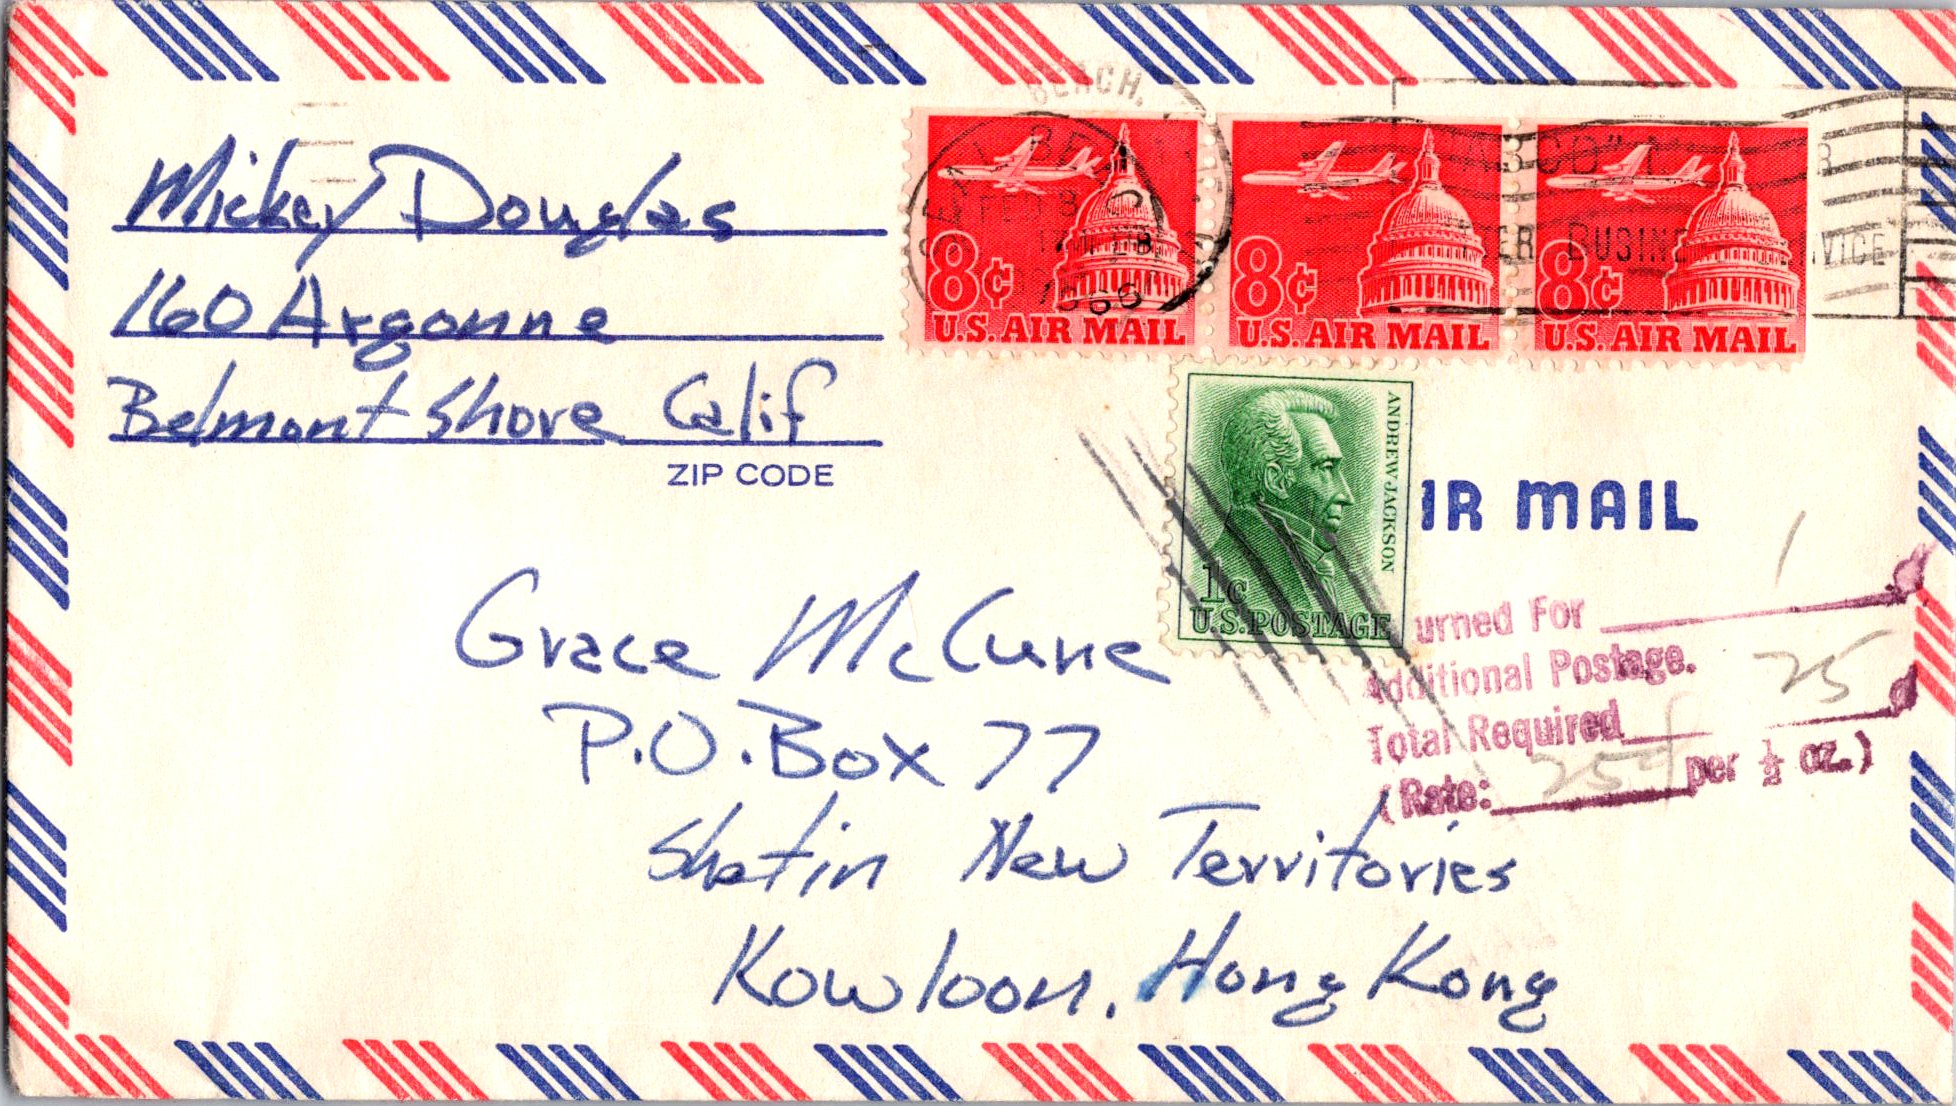 Mickey Douglas
160 Argonne
Belmont Shore Calif
ZIP CODE
BEACH,
SEAL BEACH
FEB 8
1966
8¢
U.S. AIR MAIL
8¢
U.S. AIR MAIL
8¢
U.S. AIR MAIL
BUSINE
VICE
ANDREW JACKSON
1c
U.S. POSTAGE
IR MAIL
urned For 1
Additional Postage.
Total Required 25
(Rate: 25¢ per ½ oz.)
Grace McCune
P.O. Box 77
Shatin New Territories
Kowloon, Hong Kong